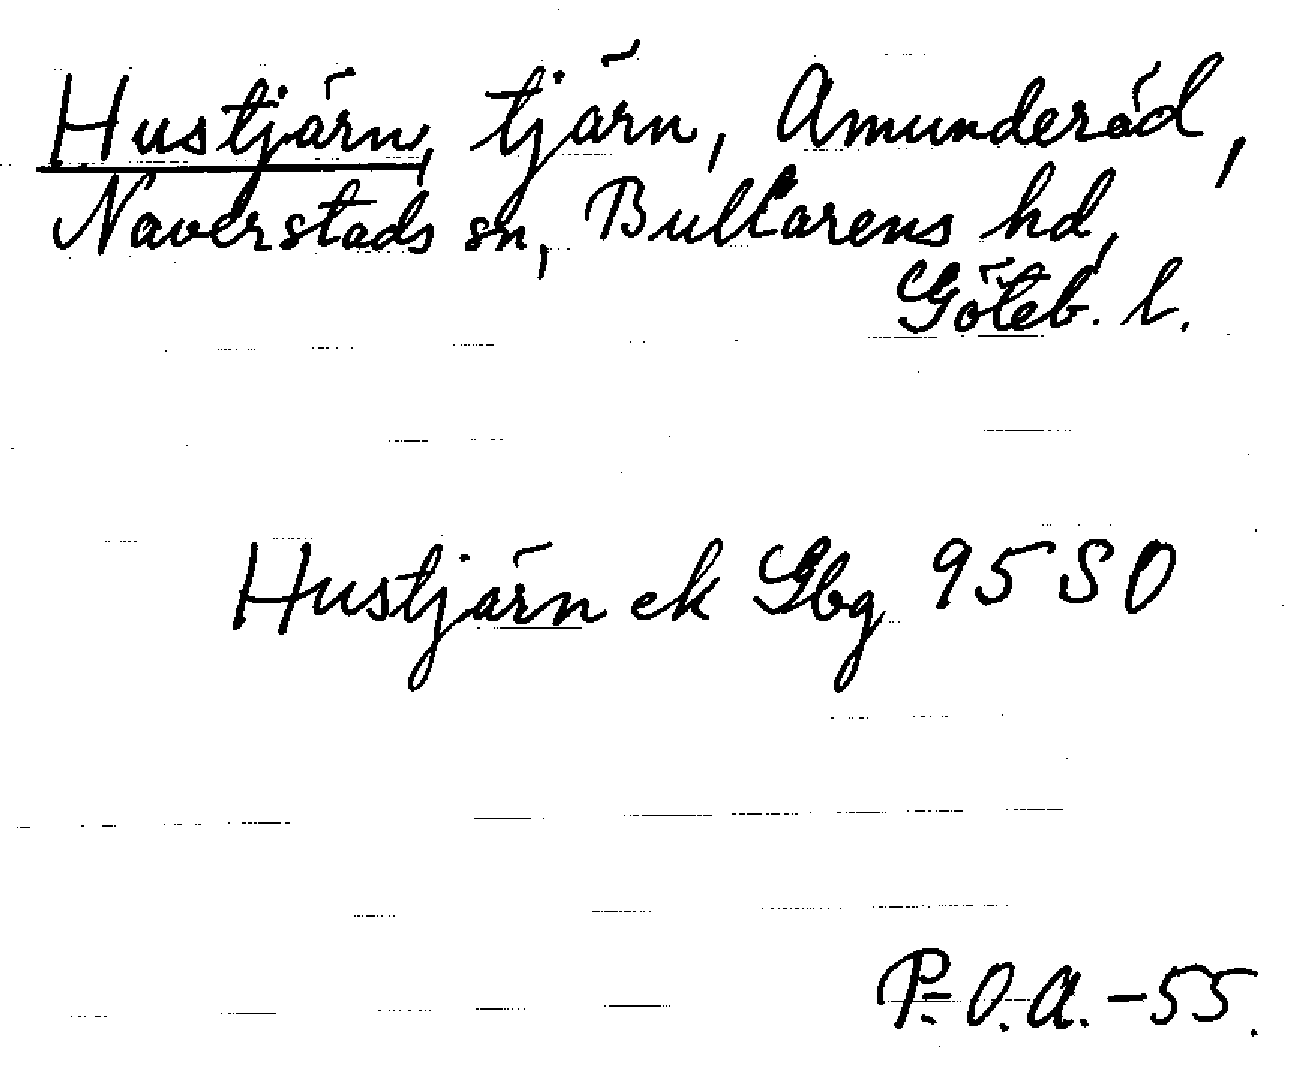 Hustjärn, tjärn, Amunderöd,
Naverstads sn, Bullarens hd,
Göteb. l.
Hustjärn ek Gbg 95 SO
P.-O.A. -55.